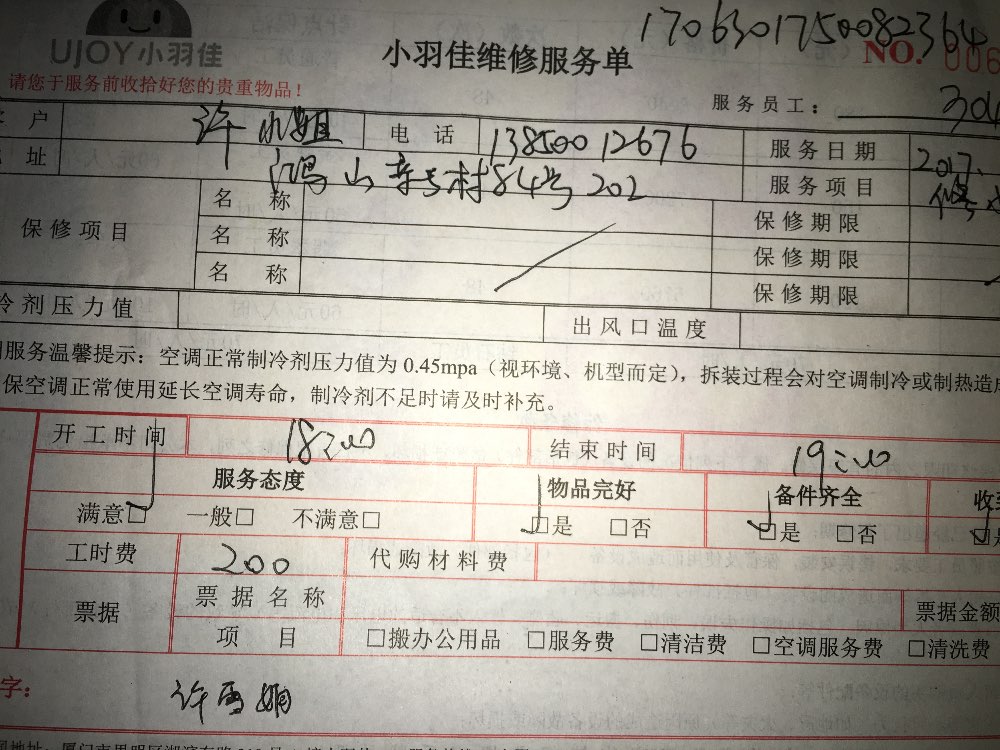 UJOY小羽佳
小羽佳维修服务单
1706301750082364
NO. 006
请您于服务前收拾好您的贵重物品！
服务员工： 304
户 许小姐 电 话 13850012676 服务日期 2017.
址 山 村84号202 服务项目
保修项目 名 称 保修期限
名 称 保修期限
名 称 保修期限
冷剂压力值 出风口温度
服务温馨提示：空调正常制冷剂压力值为 0.45mpa（视环境、机型而定），拆装过程会对空调制冷或制热造
保空调正常使用延长空调寿命，制冷剂不足时请及时补充。
开工时间 18:00 结束时间 19:00
服务态度 物品完好 备件齐全 收
满意☑ 一般□ 不满意□ ☑是 □否 ☑是 □否 ☑是
工时费 200 代购材料费
票据 票据名称 票据金额
项 目 □搬办公用品 □服务费 □清洁费 □空调服务费 □清洗费
字： 许雨娴